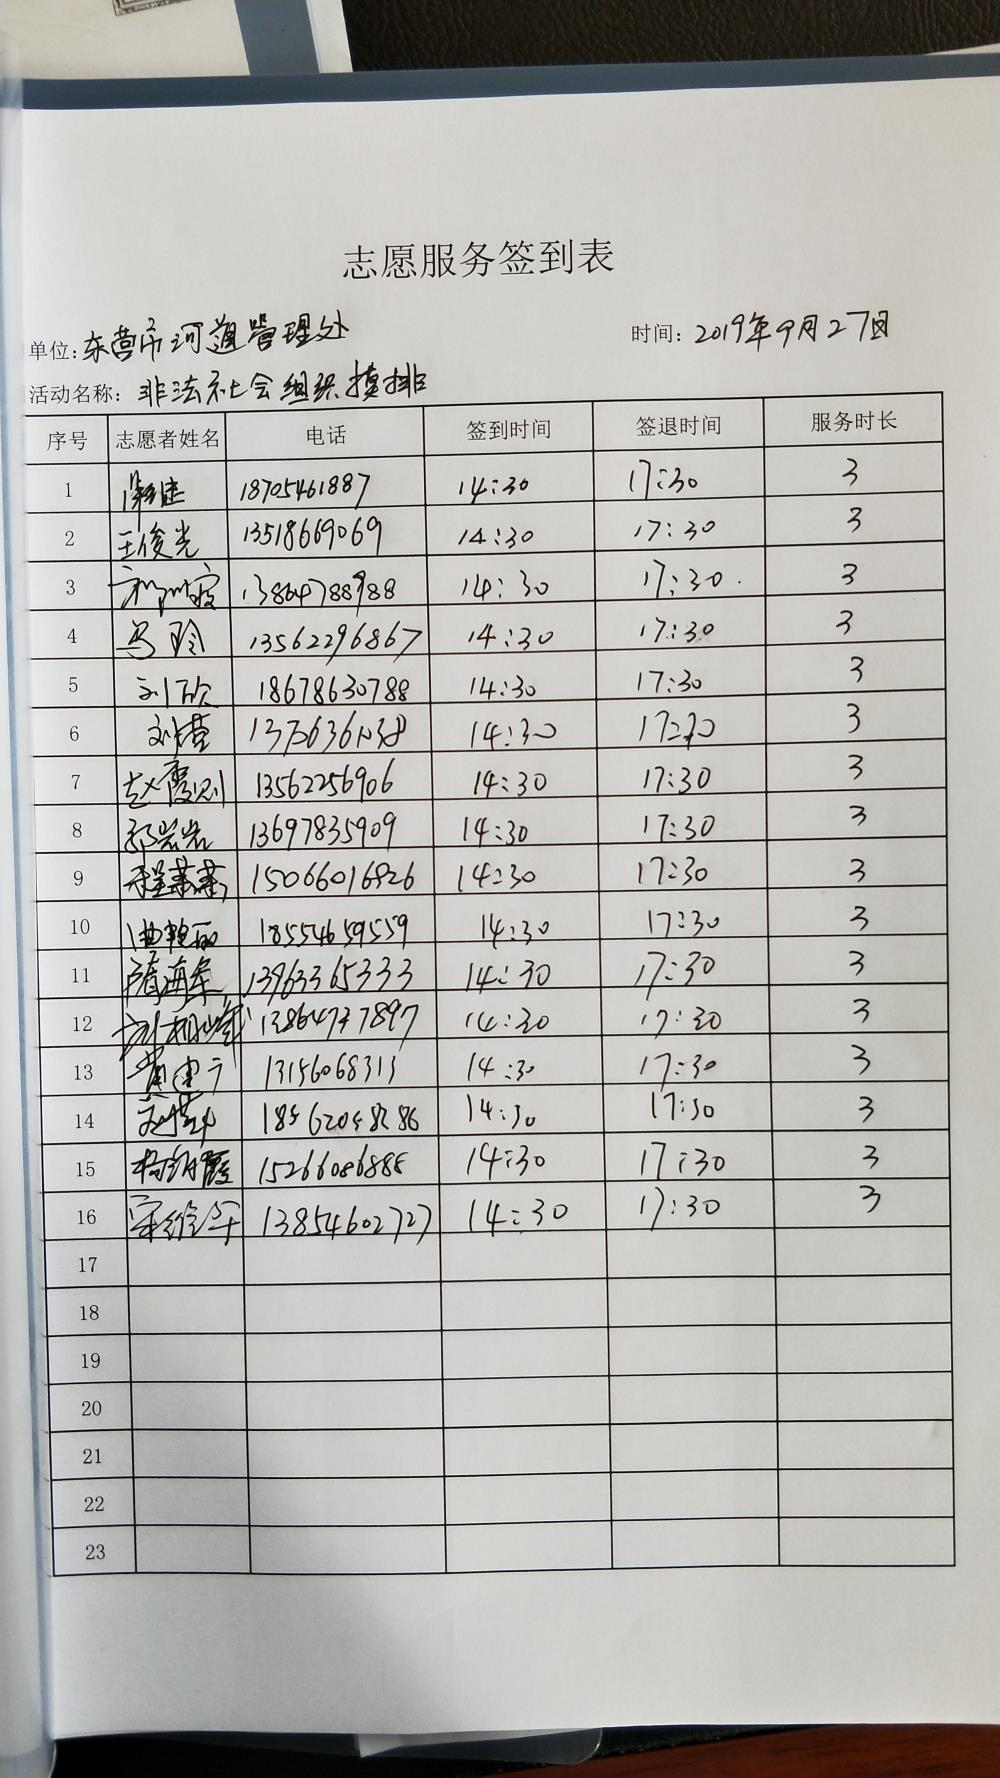 志愿服务签到表
单位:东营市河道管理处 时间:2019年9月27日
活动名称:非法社会组织摸排
序号 志愿者姓名 电话 签到时间 签退时间 服务时长
1 18705461887 14:30 17:30 3
2 王俊光 13518669069 14:30 17:30 3
3 13864788988 14:30 17:30 3
4 马玲 13562296867 14:30 17:30 3
5 刘欣 18678630788 14:30 17:30 3
6 刘营 14:30 17:30 3
7 赵霞 13562256906 14:30 17:30 3
8 郭岩岩 13697835909 14:30 17:30 3
9 程萧萧 15066016826 14:30 17:30 3
10 曲艳丽 18554659559 14:30 17:30 3
11 隋海军 13963365333 14:30 17:30 3
12 刘相峰 13864737897 14:30 17:30 3
13 黄建广 13156068313 14:30 17:30 3
14 14:30 17:30 3
15 15266086888 14:30 17:30 3
16 宋维华 13854602727 14:30 17:30 3
17
18
19
20
21
22
23